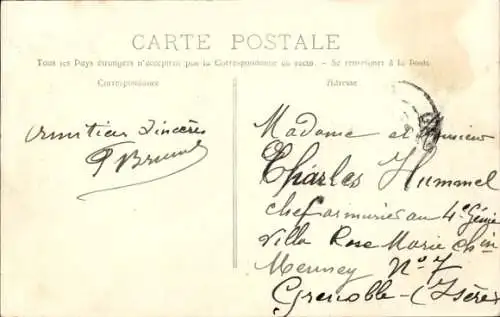 CARTE POSTALE
Tous les Pays étrangers n'acceptent pas la Correspondance au recto. - Se renseigner à la Poste.
Correspondance
Adresse
Amitiés Sincères
Madame et Monsieur
Charles Hummel
chef armurier au 4e Génie
Villa Rose Marie chin
N° 7
Grenoble - (Isère)